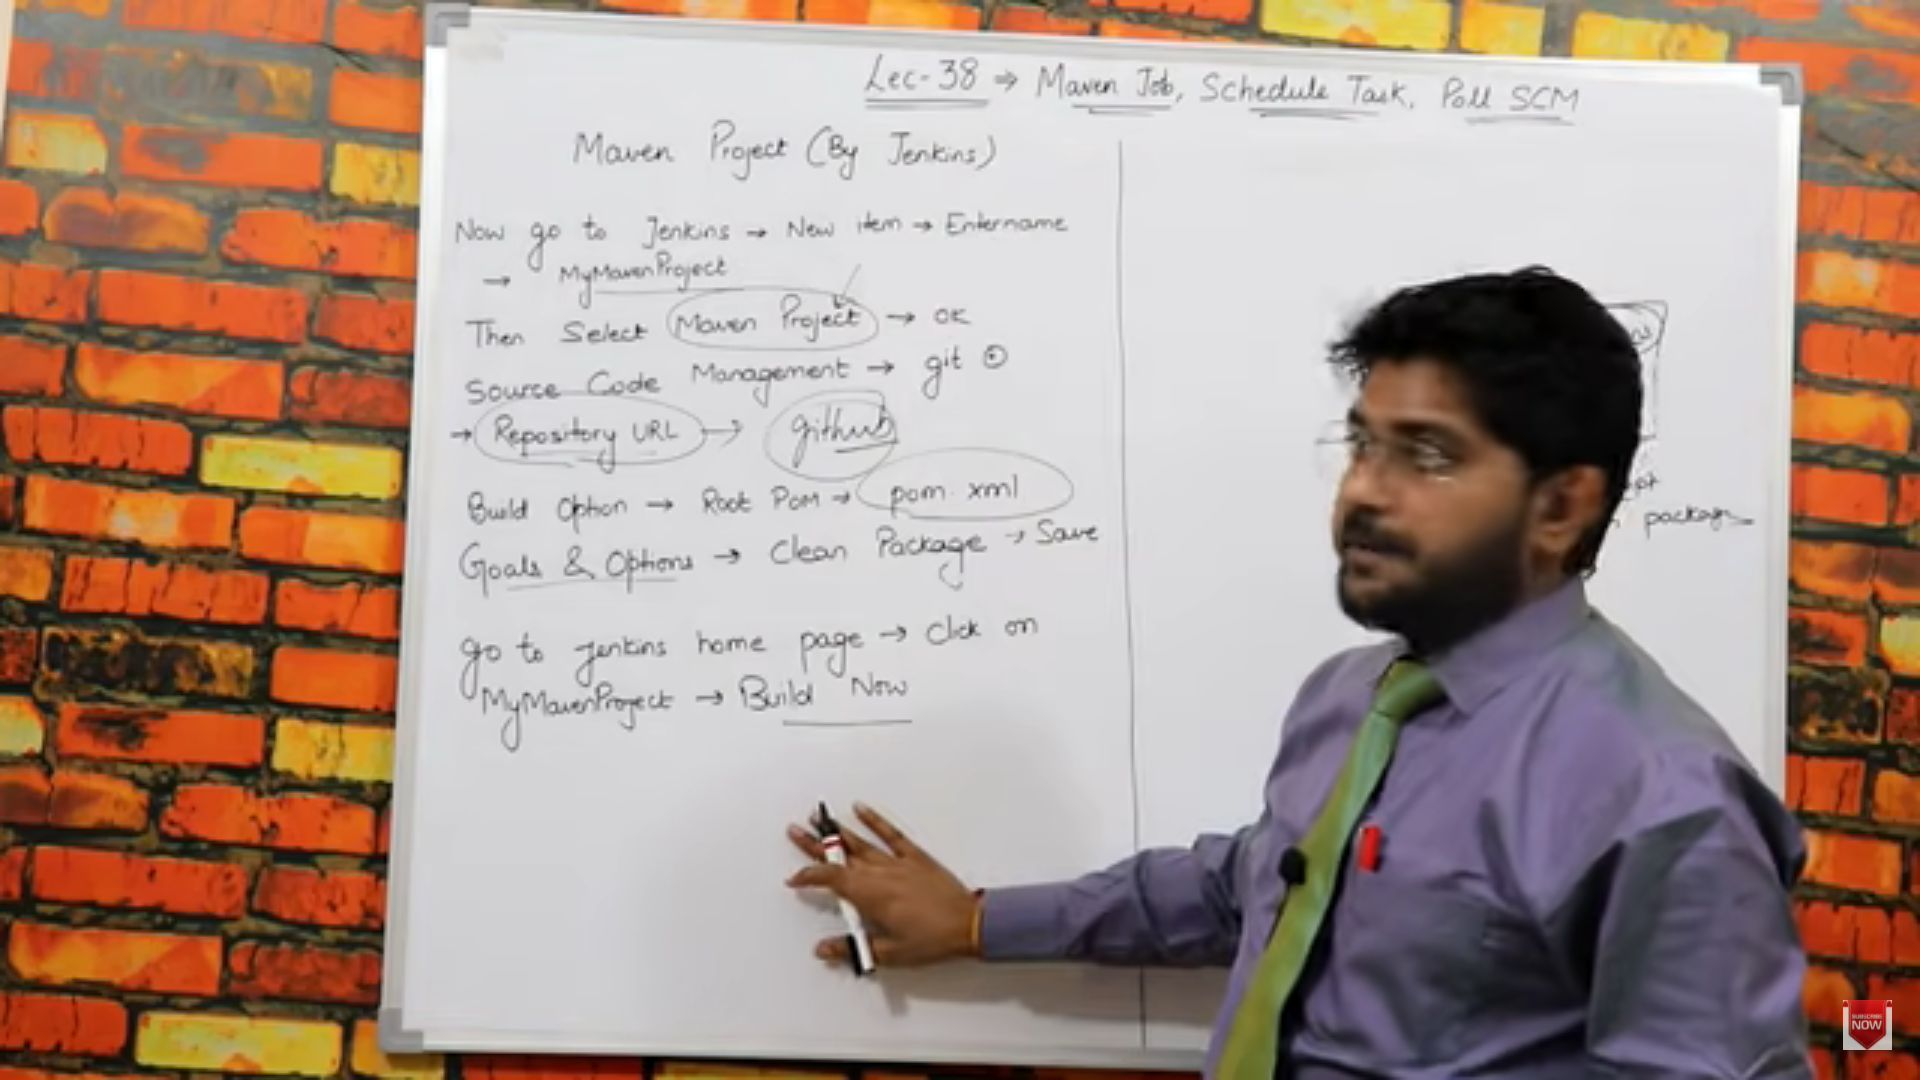 Lec-38 ⇒ Maven Job, Schedule Task, Poll SCM
Maven Project (By Jenkins)
Now go to Jenkins → New item → Entername
→ MyMavenProject
Then Select Maven Project → OK
Source Code Management → git ⊙
→ Repository URL → github
Build Option → Root POM → pom.xml
Goals & Options → Clean Package → Save
go to jenkins home page → Click on
MyMavenProject → Build Now
package
SUBSCRIBE
NOW